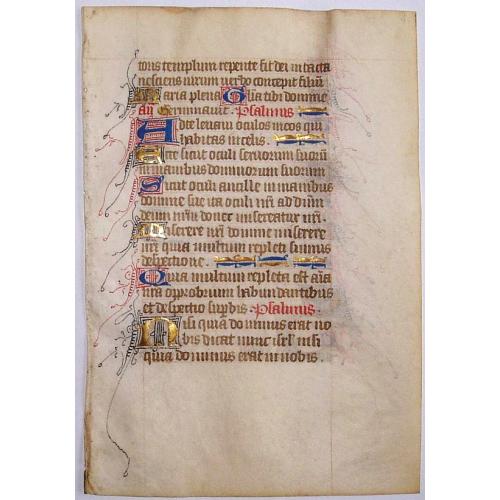 toris templum repente fit dei intacta
nesciens virum verbo concepit filiū
Maria plena G̅ia tibi domine
añ Germinavit. Psalmus
Ad te levavi oculos meos qui
habitas in celis.
Ecce sicut oculi servorum suorū
in manibus dominorum suorum
Sicut oculi ancille in manibus
domine sue ita oculi nr̄i ad dūm
deum nr̄m donec misereatur nr̄i.
Miserere nr̄i domine miserere
nr̄i quia multum repleti sumus
despectione.
Quia multum repleta est aīa
nr̄a opprobrium habundantibus
et despectio supbis. Psalmus.
Nisi quia dominus erat no
bis dicat nunc isrl̄ nisi
quia dominus erat in nobis.